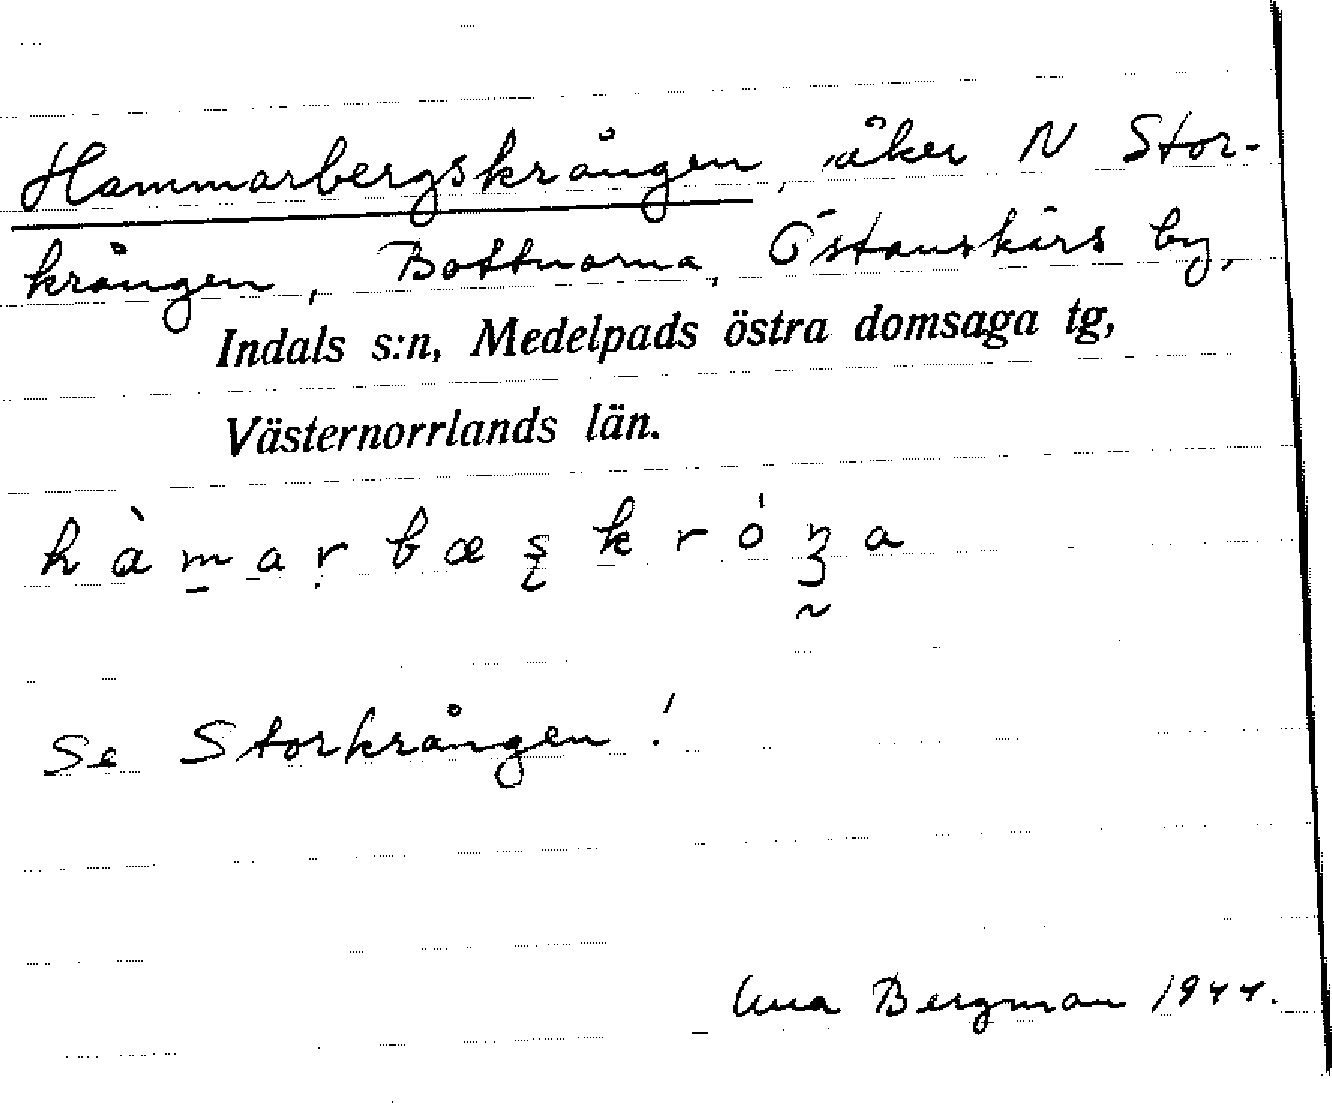 Hammarbergskrången, åker N Stor-
krången, Bottnarna, Östanskärs by,
Indals s:n, Medelpads östra domsaga tg,
Västernorrlands län.
hàmarbæskróŋa
Se Storkrången!
Anna Bergman 1944.